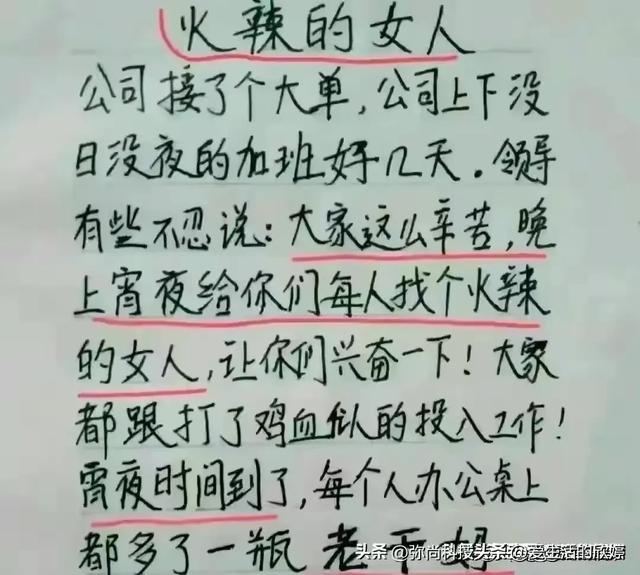 火辣的女人
公司接了个大单，公司上下没
日没夜的加班好几天。领导
有些不忍说：大家这么辛苦，晚
上宵夜给你们每人找个火辣
的女人，让你们兴奋一下！大家
都跟打了鸡血似的投入工作！
宵夜时间到了，每个人办公桌上
都多了一瓶 老干妈
头条 @弥尚科技 头条 @爱生活的欣嬷